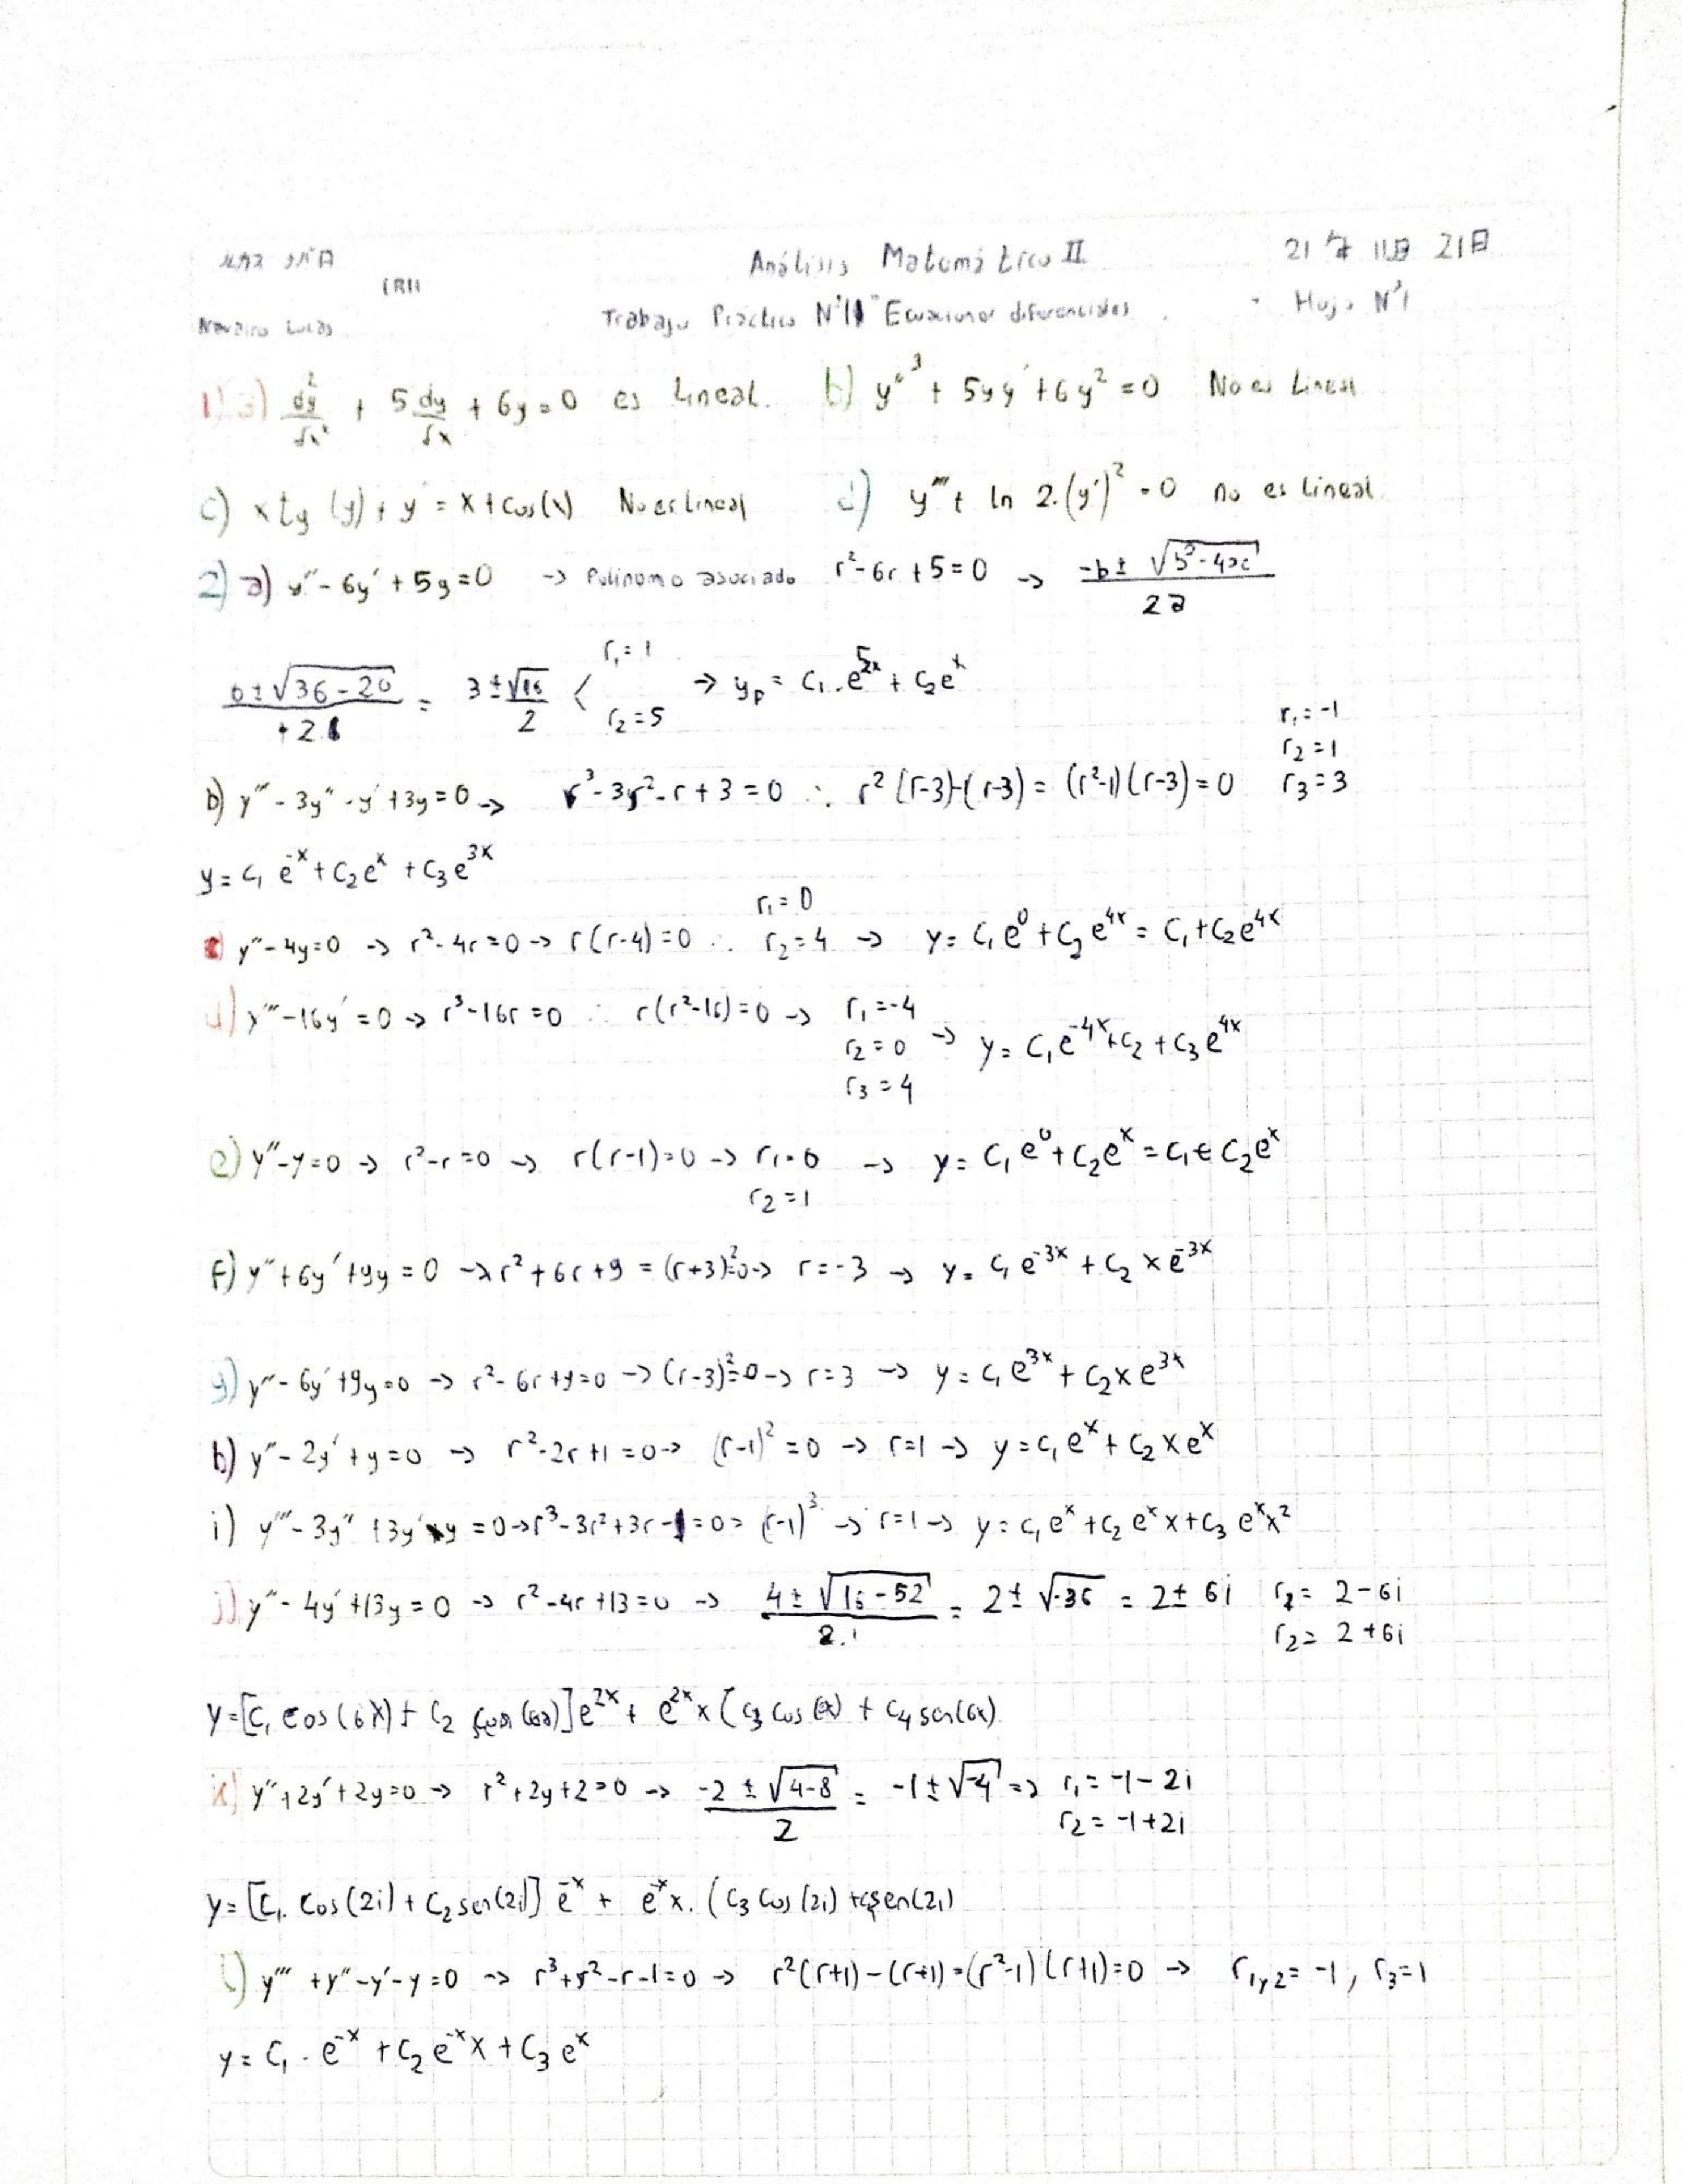 Análisis Matemático II 21年 11月 21日
Navarro Lucas Trabajo Práctico N°11 Ecuaciones diferenciales Hoja N°1
1) a) dy²/dx² + 5 dy/dx + 6y = 0 es Lineal. b) y''³ + 5yy' + 6y² = 0 No es Lineal
c) x tg (y) + y' = x + cos(x) No es Lineal d) y''' + ln 2.(y')² = 0 no es Lineal
2) a) y'' - 6y' + 5y = 0 -> Polinomo asociado r² - 6r + 5 = 0 -> -b ± √(b² - 4ac) / 2a
6 ± √(36 - 20) / 2 = 3 ± √16 / 2 < r₁ = 1 r₂ = 5 -> yp = C₁.e^5x + C₂e^x
b) y''' - 3y'' - y' + 3y = 0 -> r³ - 3r² - r + 3 = 0 ∴ r²(r-3)-(r-3) = (r²-1)(r-3) = 0 r₁ = -1 r₂ = 1 r₃ = 3
y = C₁ e^-x + C₂ e^x + C₃ e^3x
y'' - 4y = 0 -> r² - 4r = 0 -> r(r-4) = 0 ∴ r₁ = 0 r₂ = 4 -> y = C₁ e^0 + C₂ e^4x = C₁ + C₂ e^4x
d) y''' - 16y' = 0 -> r³ - 16r = 0 ∴ r(r²-16) = 0 -> r₁ = -4 r₂ = 0 r₃ = 4 -> y = C₁ e^-4x + C₂ + C₃ e^4x
e) y'' - y = 0 -> r² - r = 0 -> r(r-1) = 0 -> r₁ = 0 r₂ = 1 -> y = C₁ e^0 + C₂ e^x = C₁ + C₂ e^x
f) y'' + 6y' + 9y = 0 -> r² + 6r + 9 = (r+3)² = 0 -> r = -3 -> y = C₁ e^-3x + C₂ x e^-3x
g) y'' - 6y' + 9y = 0 -> r² - 6r + 9 = 0 -> (r-3)² = 0 -> r = 3 -> y = C₁ e^3x + C₂ x e^3x
h) y'' - 2y' + y = 0 -> r² - 2r + 1 = 0 -> (r-1)² = 0 -> r = 1 -> y = C₁ e^x + C₂ x e^x
i) y''' - 3y'' + 3y' - y = 0 -> r³ - 3r² + 3r - 1 = 0 = (r-1)³ -> r = 1 -> y = C₁ e^x + C₂ e^x x + C₃ e^x x²
j) y'' - 4y' + 13y = 0 -> r² - 4r + 13 = 0 -> 4 ± √(16 - 52) / 2.1 = 2 ± √-36 = 2 ± 6i r₁ = 2 - 6i r₂ = 2 + 6i
y = [C₁ cos(6x) + C₂ sen(6x)] e^2x + e^2x x [C₃ cos(6x) + C₄ sen(6x)
k) y'' + 2y' + 2y = 0 -> r² + 2y + 2 = 0 -> -2 ± √(4-8) / 2 = -1 ± √-4 => r₁ = -1 - 2i r₂ = -1 + 2i
y = [C₁. cos(2i) + C₂ sen(2i)] e^-x + e^-x x. (C₃ cos(2i) + C₄sen(2i)
l) y''' + y'' - y' - y = 0 -> r³ + r² - r - 1 = 0 -> r²(r+1) - (r+1) = (r²-1)(r+1) = 0 -> r₁ y ₂ = -1, r₃ = 1
y = C₁ . e^-x + C₂ e^-x x + C₃ e^x